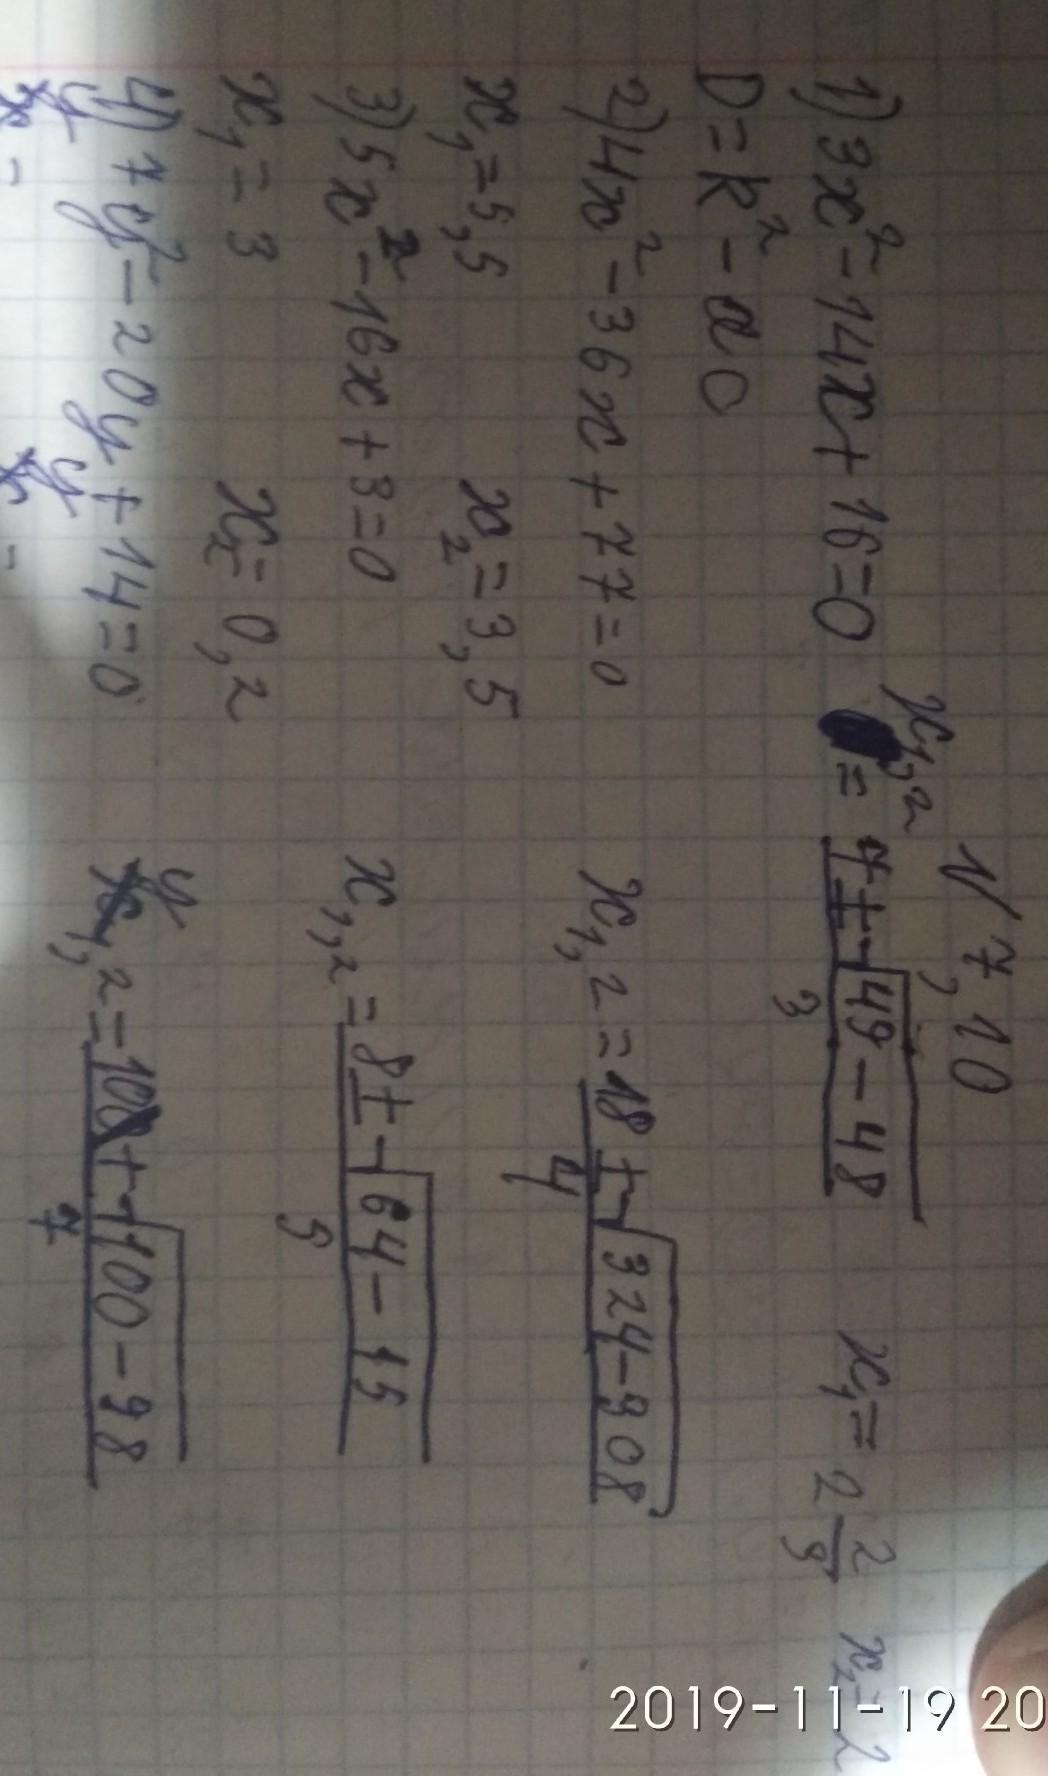 √ 7,10
1) 3x² - 14x + 16 = 0 x₁,₂ = 7 ± √49 - 48 / 3 x₁ = 2 2/3 x₂ = 2
D = k² - ac
2) 4x² - 36x + 77 = 0 x₁,₂ = 18 ± √324 - 308 / 4
x₁ = 5,5 x₂ = 3,5
3) 5x² - 16x + 3 = 0 x₁,₂ = 8 ± √64 - 15 / 5
x₁ = 3 x₂ = 0,2
4) 7y² - 20y + 14 = 0 y₁,₂ = 10 ± √100 - 98 / 7
y = y =
2019-11-19 20